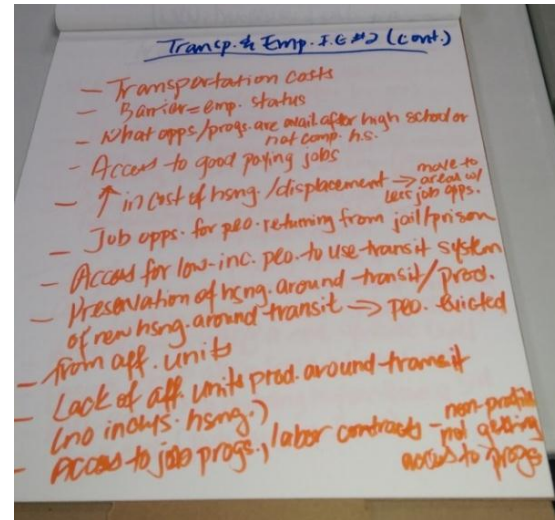 Transp. & Emp. I.G #2 (cont.)
- Transportation costs
- Barrier = emp. status
- What opps/progs. are avail. after high school or
not comp. h.s.
- Access to good paying jobs
- ↑ in cost of hsng./displacement → move to
areas w/
less job opps.
- Job opps. for peo. returning from jail/prison
- Access for low-inc. peo. to use transit system
- Preservation of hsng. around transit/prod.
of new hsng. around transit → peo. evicted
- from aff. units
- Lack of aff. units prod. around transit
(no inclus. hsng.)
- Access to job progs., labor contracts - non-profits
not getting
access to progs